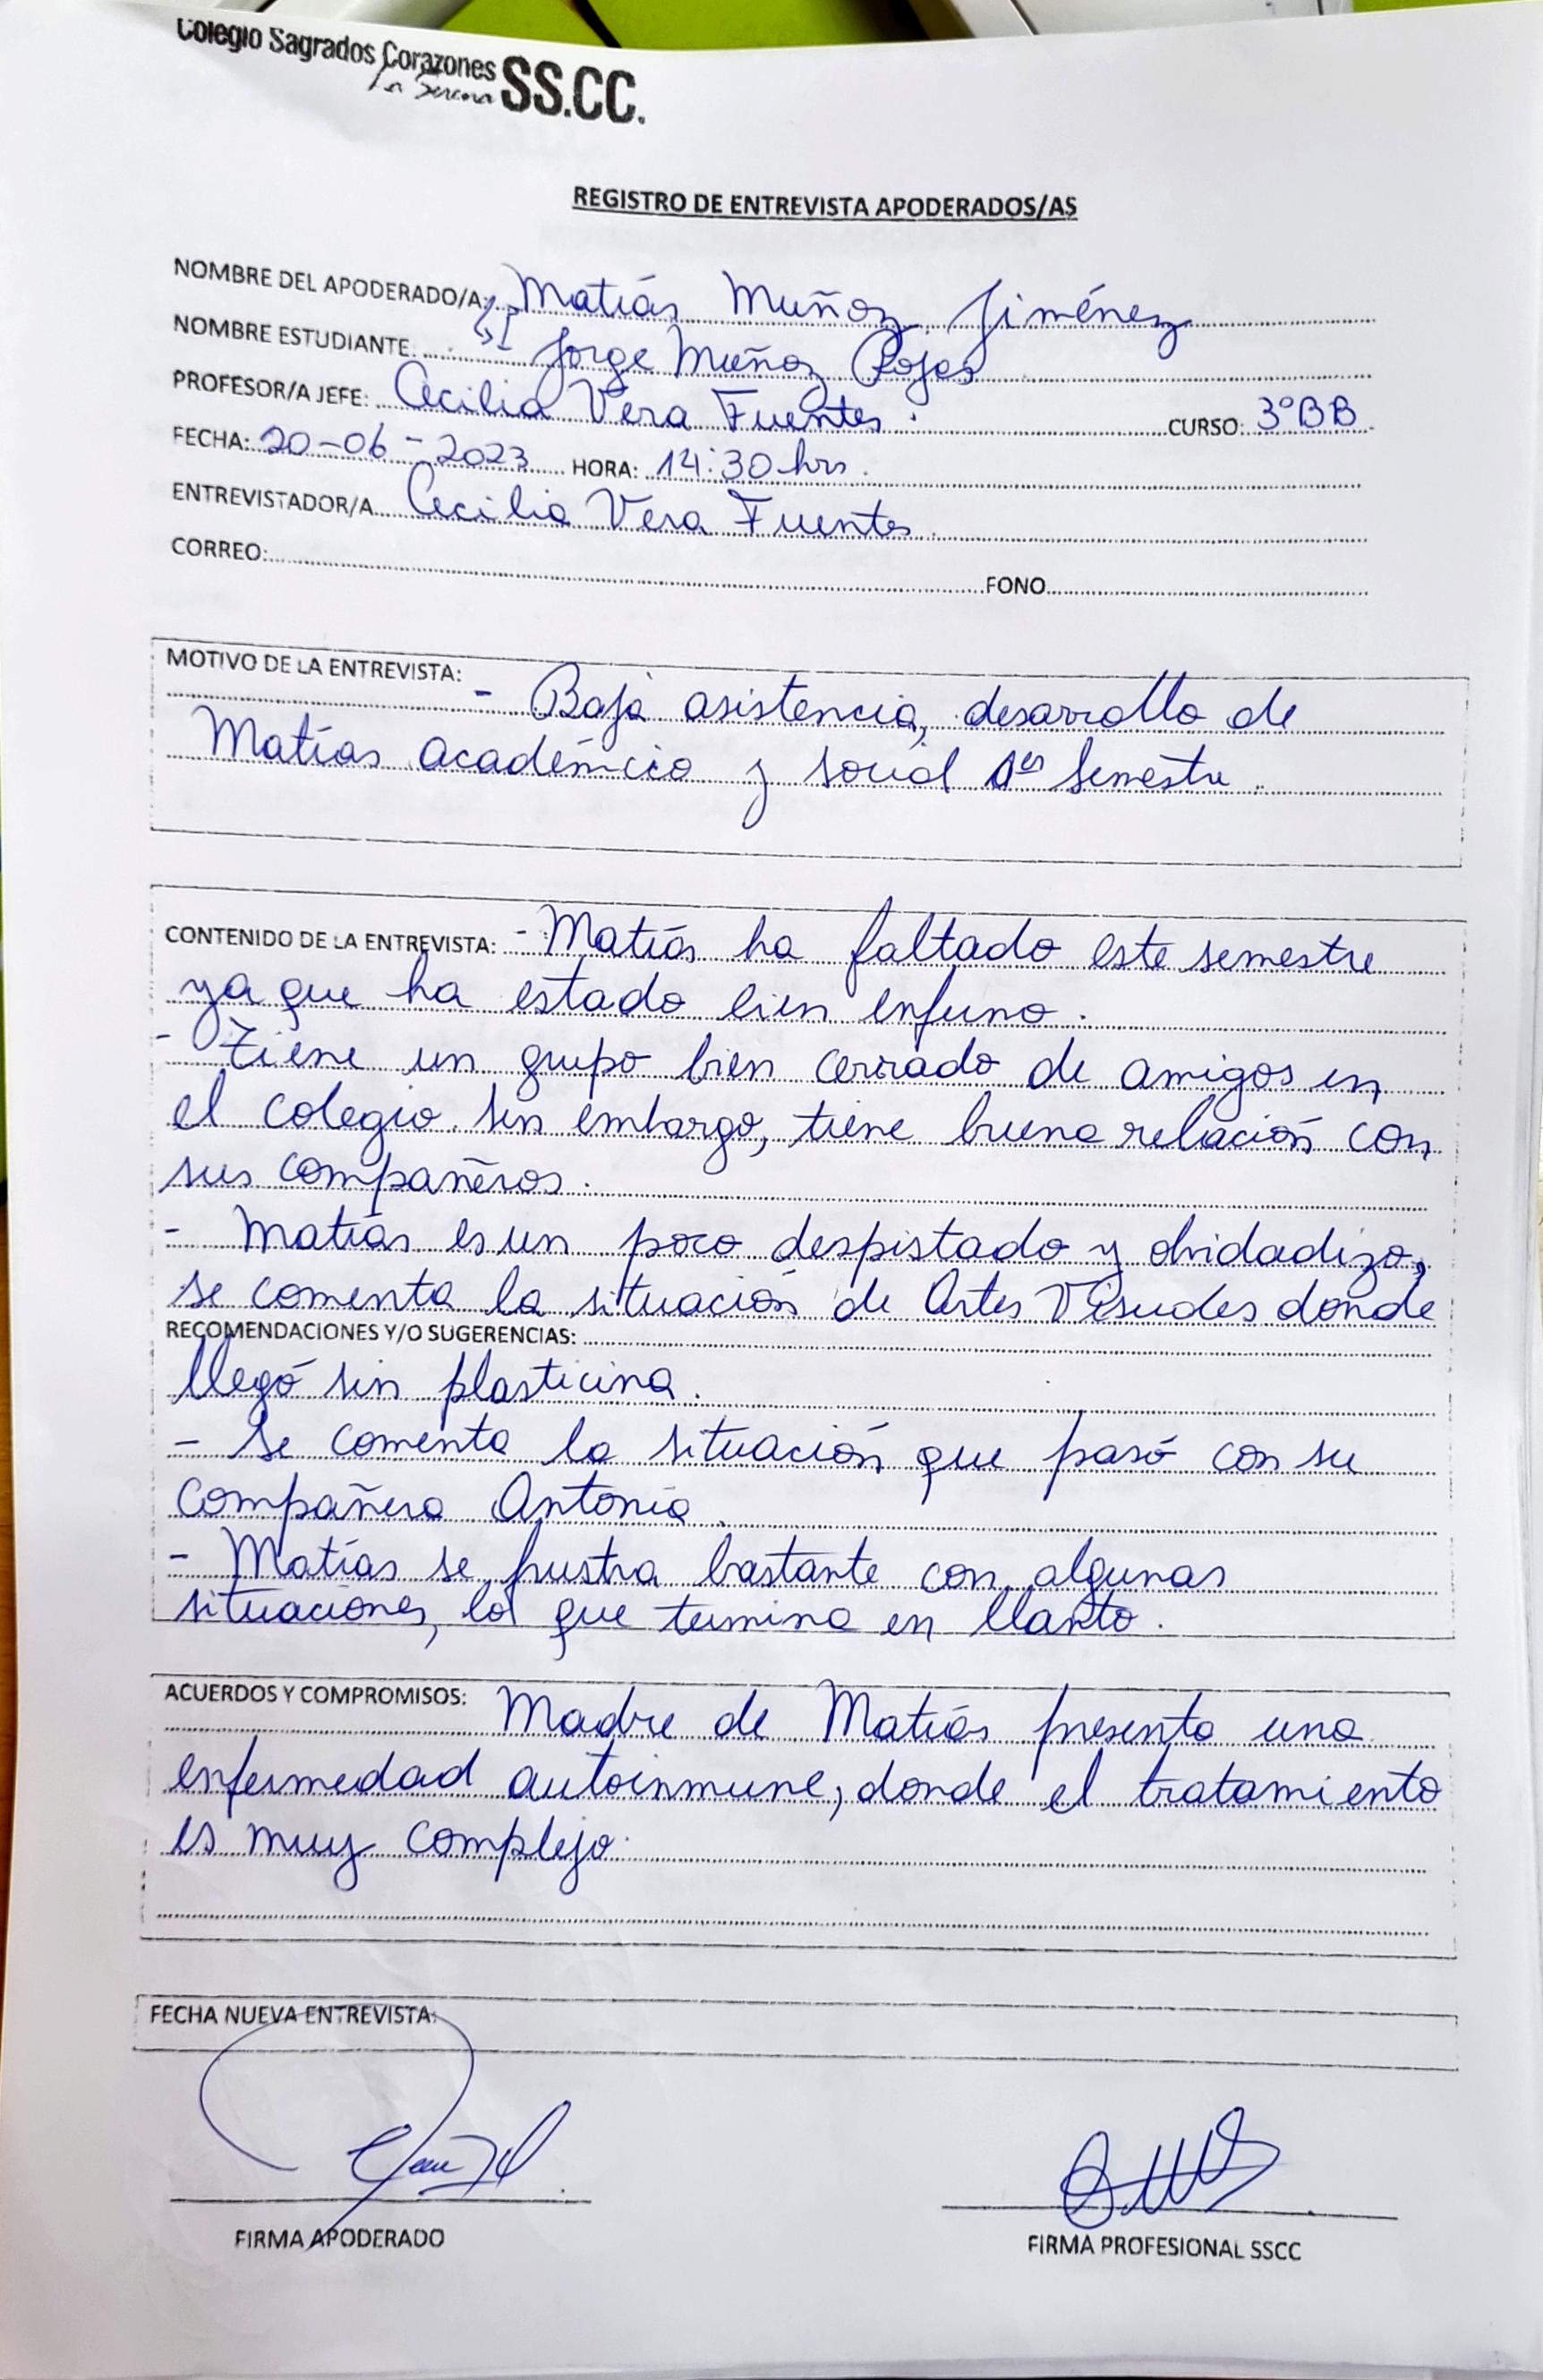 Colegio Sagrados Corazones
La Serena SS.CC.
REGISTRO DE ENTREVISTA APODERADOS/AS
NOMBRE DEL APODERADO/A: Matías Muñoz Jiménez
NOMBRE ESTUDIANTE: Jorge Muñoz Rojas
PROFESOR/A JEFE: Cecilia Vera Fuentes. CURSO: 3°BB
FECHA: 20-06-2023 HORA: 14:30 hrs.
ENTREVISTADOR/A Cecilia Vera Fuentes
CORREO: FONO
MOTIVO DE LA ENTREVISTA: - Baja asistencia, desarrollo de
Matías académico y social 1er Semestre.
CONTENIDO DE LA ENTREVISTA: - Matías ha faltado este semestre
ya que ha estado bien enfermo.
- Tiene un grupo bien cerrado de amigos en
el colegio. sin embargo, tiene buena relación con
sus compañeros.
- Matías es un poco despistado y olvidadizo,
se comenta la situación de Artes Visuales donde
RECOMENDACIONES Y/O SUGERENCIAS:
llegó sin plasticina.
- Se comenta la situación que pasó con su
compañera Antonia.
- Matías se frustra bastante con algunas
situaciones, lo que termina en llanto.
ACUERDOS Y COMPROMISOS: Madre de Matías presenta una
enfermedad autoinmune, donde el tratamiento
es muy complejo.
FECHA NUEVA ENTREVISTA:
FIRMA APODERADO
FIRMA PROFESIONAL SSCC